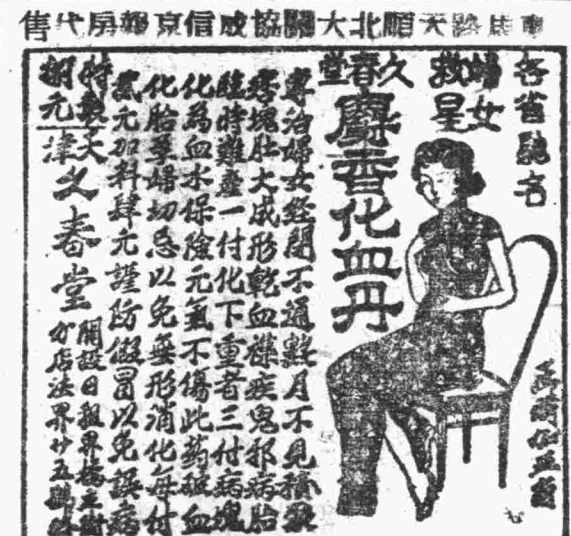 售代房報京信成協關大北順天路馬東
各省馳名
婦女救星
久春堂
麝香化血丹
專治婦女經閉不通數月不見積聚
痞塊肚大成形乾血癆疾鬼邪病胎
臨時難產一付化下重者三付病塊
化為血水保險元氣不傷此藥破血
化胎孕婦切忌以免無形消化每付
貳元加料肆元謹防假冒以免誤病
特效大
津久春堂
開設日租界橋立街
分店法界廿五號路